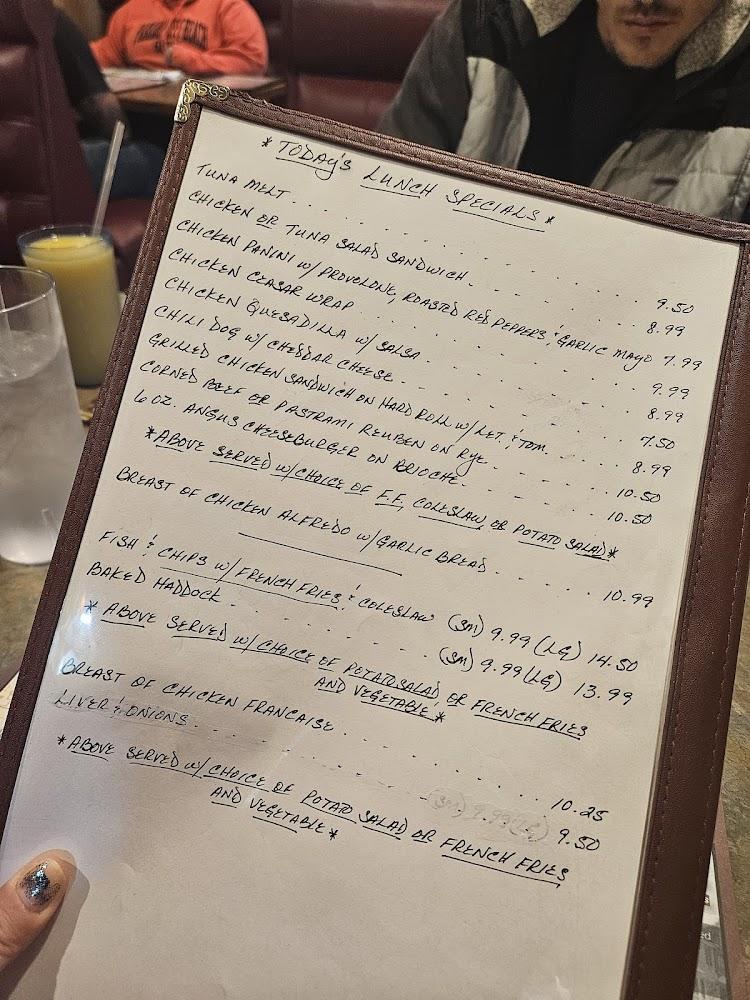 *TODAY'S LUNCH SPECIALS*
TUNA MELT . . . . . . . . 9.50
CHICKEN OR TUNA SALAD SANDWICH . . . . . . 8.99
CHICKEN PANINI W/ PROVOLONE, ROASTED RED PEPPERS, & GARLIC MAYO 7.99
CHICKEN CEASAR WRAP . . . . . . . . 9.99
CHICKEN QUESADILLA W/ SALSA . . . . . . 8.99
CHILI DOG W/ CHEDDAR CHEESE . . . . . . 7.50
GRILLED CHICKEN SANDWICH ON HARD ROLL W/ LET. & TOM. . . . . 8.99
CORNED BEEF OR PASTRAMI REUBEN ON RYE . . . . . 10.50
6 OZ. ANGUS CHEESEBURGER ON BRIOCHE . . . . . . 10.50
*ABOVE SERVED W/ CHOICE OF F.F., COLESLAW, OR POTATO SALAD*
BREAST OF CHICKEN ALFREDO W/ GARLIC BREAD . . . . . 10.99
FISH & CHIPS W/ FRENCH FRIES & COLESLAW (SM) 9.99 (LG) 14.50
BAKED HADDOCK . . . . . . . (SM) 9.99 (LG) 13.99
* ABOVE SERVED W/ CHOICE OF POTATO SALAD OR FRENCH FRIES
AND VEGETABLE*
BREAST OF CHICKEN FRANCAISE . . . . . . . 10.25
LIVER & ONIONS . . . . . . . (SM) 9.99 (LG) 9.50
*ABOVE SERVED W/ CHOICE OF POTATO SALAD OR FRENCH FRIES
AND VEGETABLE*